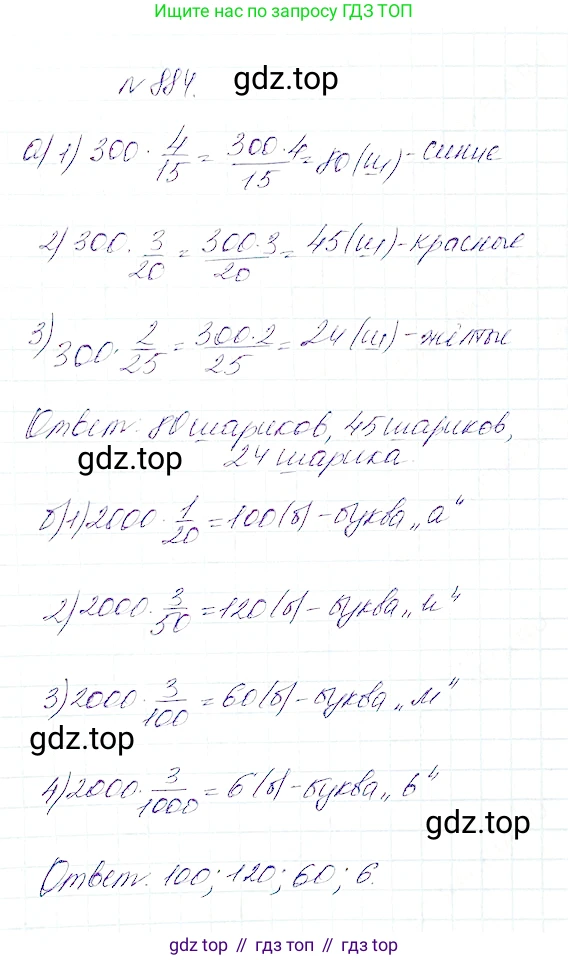 Ищите нас по запросу ГДЗ ТОП
№ 884. gdz.top
а) 1) 300 · 4/15 = 300·4/15 = 80 (ш) - синие
2) 300 · 3/20 = 300·3/20 = 45 (ш) - красные
3) 300 · 2/25 = 300·2/25 = 24 (ш) - жёлтые
Ответ: 80 шариков, 45 шариков,
gdz.top 24 шарика.
б) 1) 2000 · 1/20 = 100 (б) - буква „а“
2) 2000 · 3/50 = 120 (б) - буква „и“
3) 2000 · 3/100 = 60 (б) - буква „м“
gdz.top
4) 2000 · 3/1000 = 6 (б) - буква „ь“
gdz.top
Ответ: 100; 120; 60; 6.
gdz top // гдз топ // gdz top